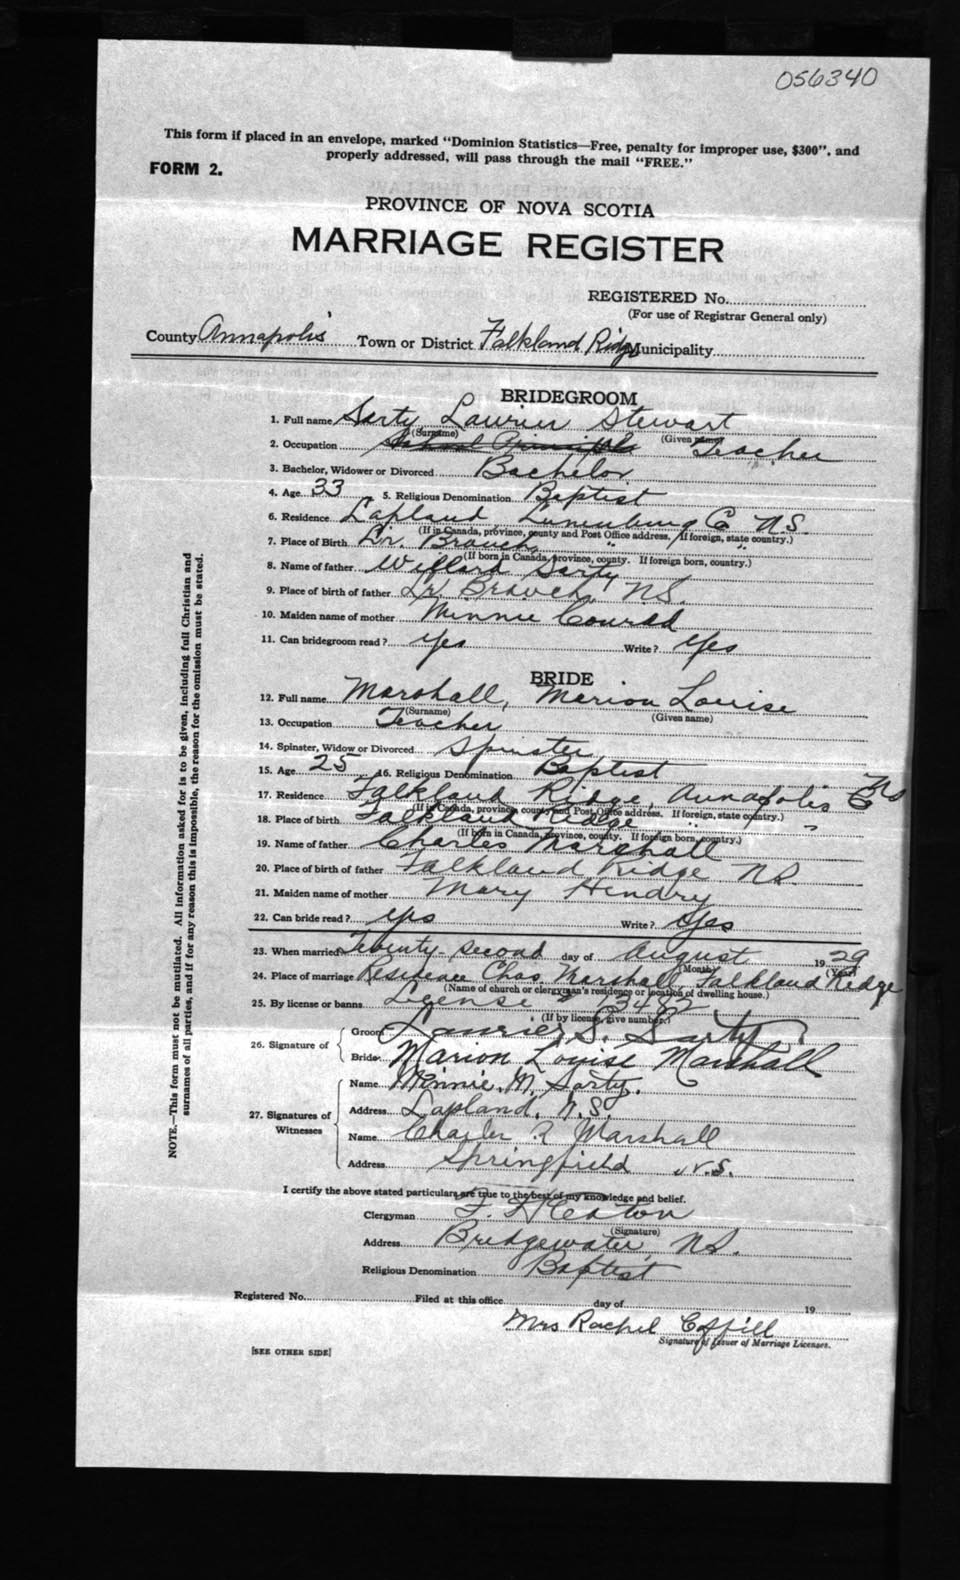 056340
This form if placed in an envelope, marked "Dominion Statistics—Free, penalty for improper use, $300", and
properly addressed, will pass through the mail "FREE."
FORM 2.
PROVINCE OF NOVA SCOTIA
MARRIAGE REGISTER
REGISTERED No.
(For use of Registrar General only)
County Annapolis Town or District Falkland Ridge Municipality
BRIDEGROOM
1. Full name Sarty Laurier Stewart
(Surname) (Given name)
2. Occupation School Principal Teacher
3. Bachelor, Widower or Divorced Bachelor
4. Age 33 5. Religious Denomination Baptist
6. Residence Lapland Lunenburg Co N.S.
(If in Canada, province, county and Post Office address. If foreign, state country.)
7. Place of Birth Lr. Branch " "
(If born in Canada, province, county. If foreign born, country.)
8. Name of father Willard Sarty
9. Place of birth of father Lr. Branch, N.S.
10. Maiden name of mother Minnie Conrad
11. Can bridegroom read? yes Write? yes
BRIDE
12. Full name Marshall, Marion Louise
(Surname) (Given name)
13. Occupation Teacher
14. Spinster, Widow or Divorced Spinster
15. Age 25 16. Religious Denomination Baptist
17. Residence Falkland Ridge, Annapolis Co NS
(If in Canada, province, county and Post Office address. If foreign, state country.)
18. Place of birth Falkland Ridge " "
(If born in Canada, province, county. If foreign born, country.)
19. Name of father Charles Marshall
20. Place of birth of father Falkland Ridge N.S.
21. Maiden name of mother Mary Hendry
22. Can bride read? yes Write? yes
23. When married Twenty-second day of August 1929
(Month) (Year)
24. Place of marriage Residence Chas. Marshall, Falkland Ridge
(Name of church or clergyman's residence or location of dwelling house.)
25. By license or banns License # 3482
(If by license, give number.)
26. Signature of Groom Laurier S. Sarty
Bride Marion Louise Marshall
27. Signatures of Witnesses
Name Minnie M. Sarty.
Address Lapland, N.S.
Name Charles R Marshall
Address Springfield N.S.
I certify the above stated particulars are true to the best of my knowledge and belief.
Clergyman F. H Eaton
(Signature)
Address Bridgewater, N.S.
Religious Denomination Baptist
Registered No. Filed at this office day of 19
Mrs Rachel
Signature of Issuer of Marriage Licenses.
[SEE OTHER SIDE]
NOTE.—This form must not be mutilated. All information asked for is to be given, including full Christian and
surnames of all parties, and if for any reason this is impossible, the reason for the omission must be stated.